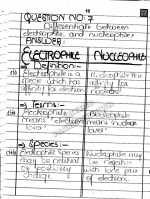 10
QUESTION NO: 7
Differentiate between
electrophile and nucleophile?
ANSWER:
ELECTROPHILE NUCLEOPHILE
Definition:-
(i) Electrophile is a Nucleophile has
specie which has affinity for
affinity for electron nucleus.
Term:-
(ii) Electrophile Nucleophile
means "electron means nucleus
lover" lover.
Species:-
(iii) Electrophilic species Nucleophile may
may be neutral be negative
or positively with lone pair
charge. of electron.